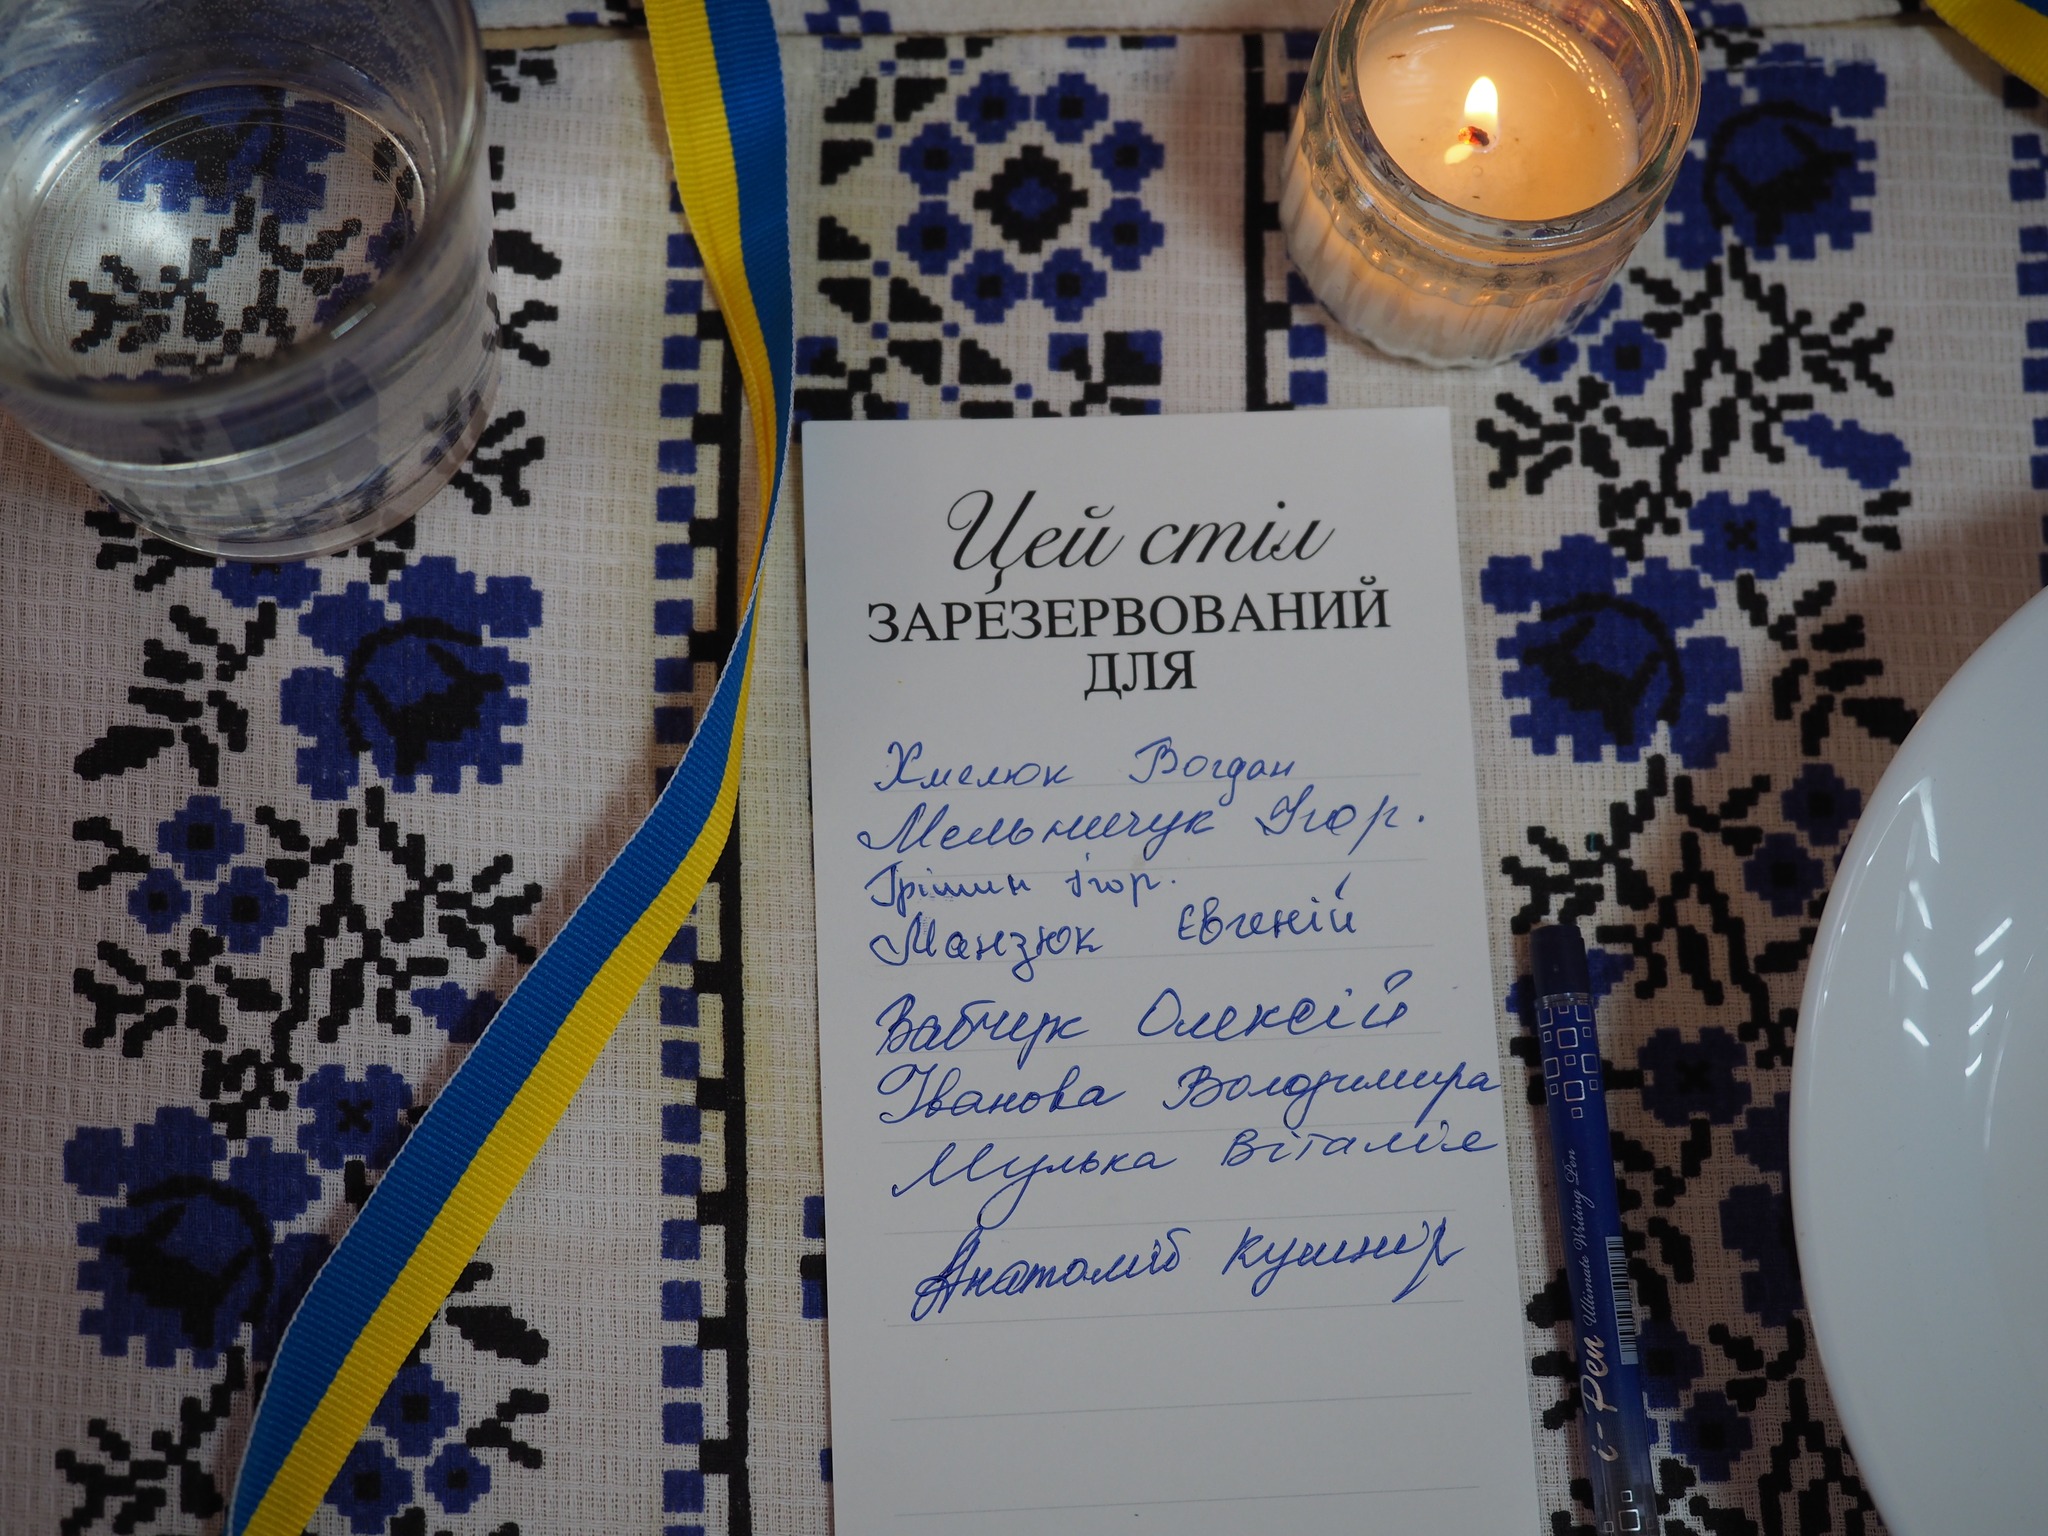 Цей стіл
ЗАРЕЗЕРВОВАНИЙ
ДЛЯ
Хмелюк Богдан
Мельничук Ігор.
Грішин Ігор.
Манзюк Євгеній
Бабчук Олексій
Іванова Володимира
Мулька Віталія
Анатолій Кушнір
i-Pen Ultimate Writing Pen